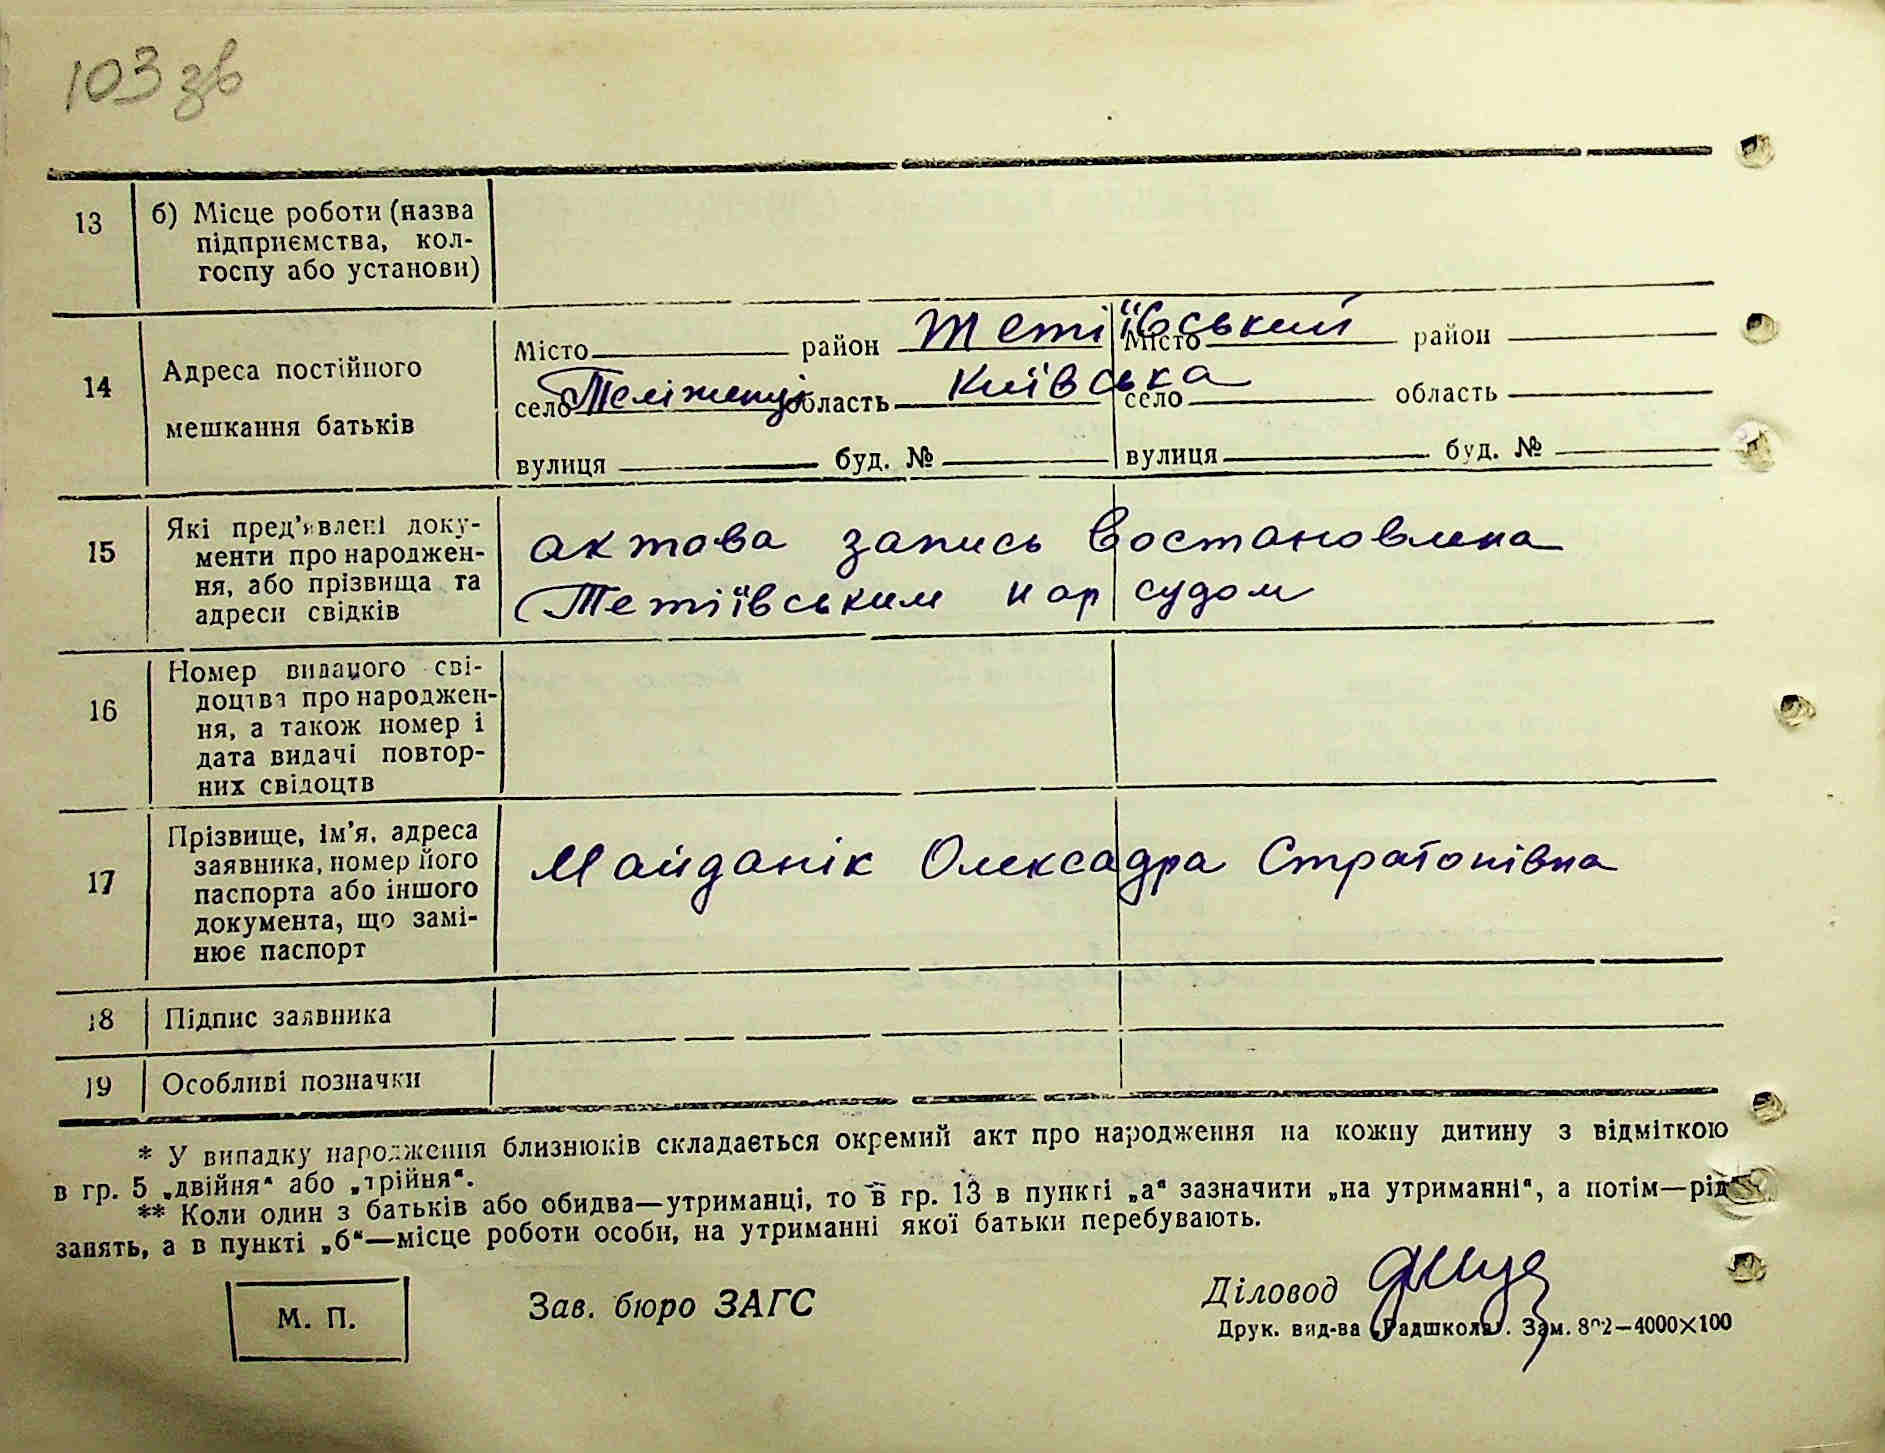 103 зв
13
б) Місце роботи (назва
підприємства, кол-
госпу або установи)
14
Адреса постійного
мешкання батьків
Місто район Тетіївський Місто район
село Теліжинці область Київська село область
вулиця буд. № вулиця буд. №
15
Які пред'явлені доку-
менти про народжен-
ня, або прізвища та
адреси свідків
актова запись востановлена
Тетіївським нар судом
16
Номер виданого сві-
доцтва про народжен-
ня, а також номер і
дата видачі повтор-
них свідоцтв
17
Прізвище, ім'я, адреса
заявника, номер його
паспорта або іншого
документа, що замі-
нює паспорт
Майданік Олексадра Стратонівна
18
Підпис заявника
19
Особливі позначки
* У випадку народження близнюків складається окремий акт про народження на кожну дитину з відміткою
в гр. 5 „двійня“ або „трійня“.
** Коли один з батьків або обидва—утриманці, то в гр. 13 в пункті „а“ зазначити „на утриманні“, а потім—рід
занять, а в пункті „б“—місце роботи особи, на утриманні якої батьки перебувають.
М. П.
Зав. бюро ЗАГС
Діловод
Друк. вид-ва „Радшкола“. Зам. 802—4000×100